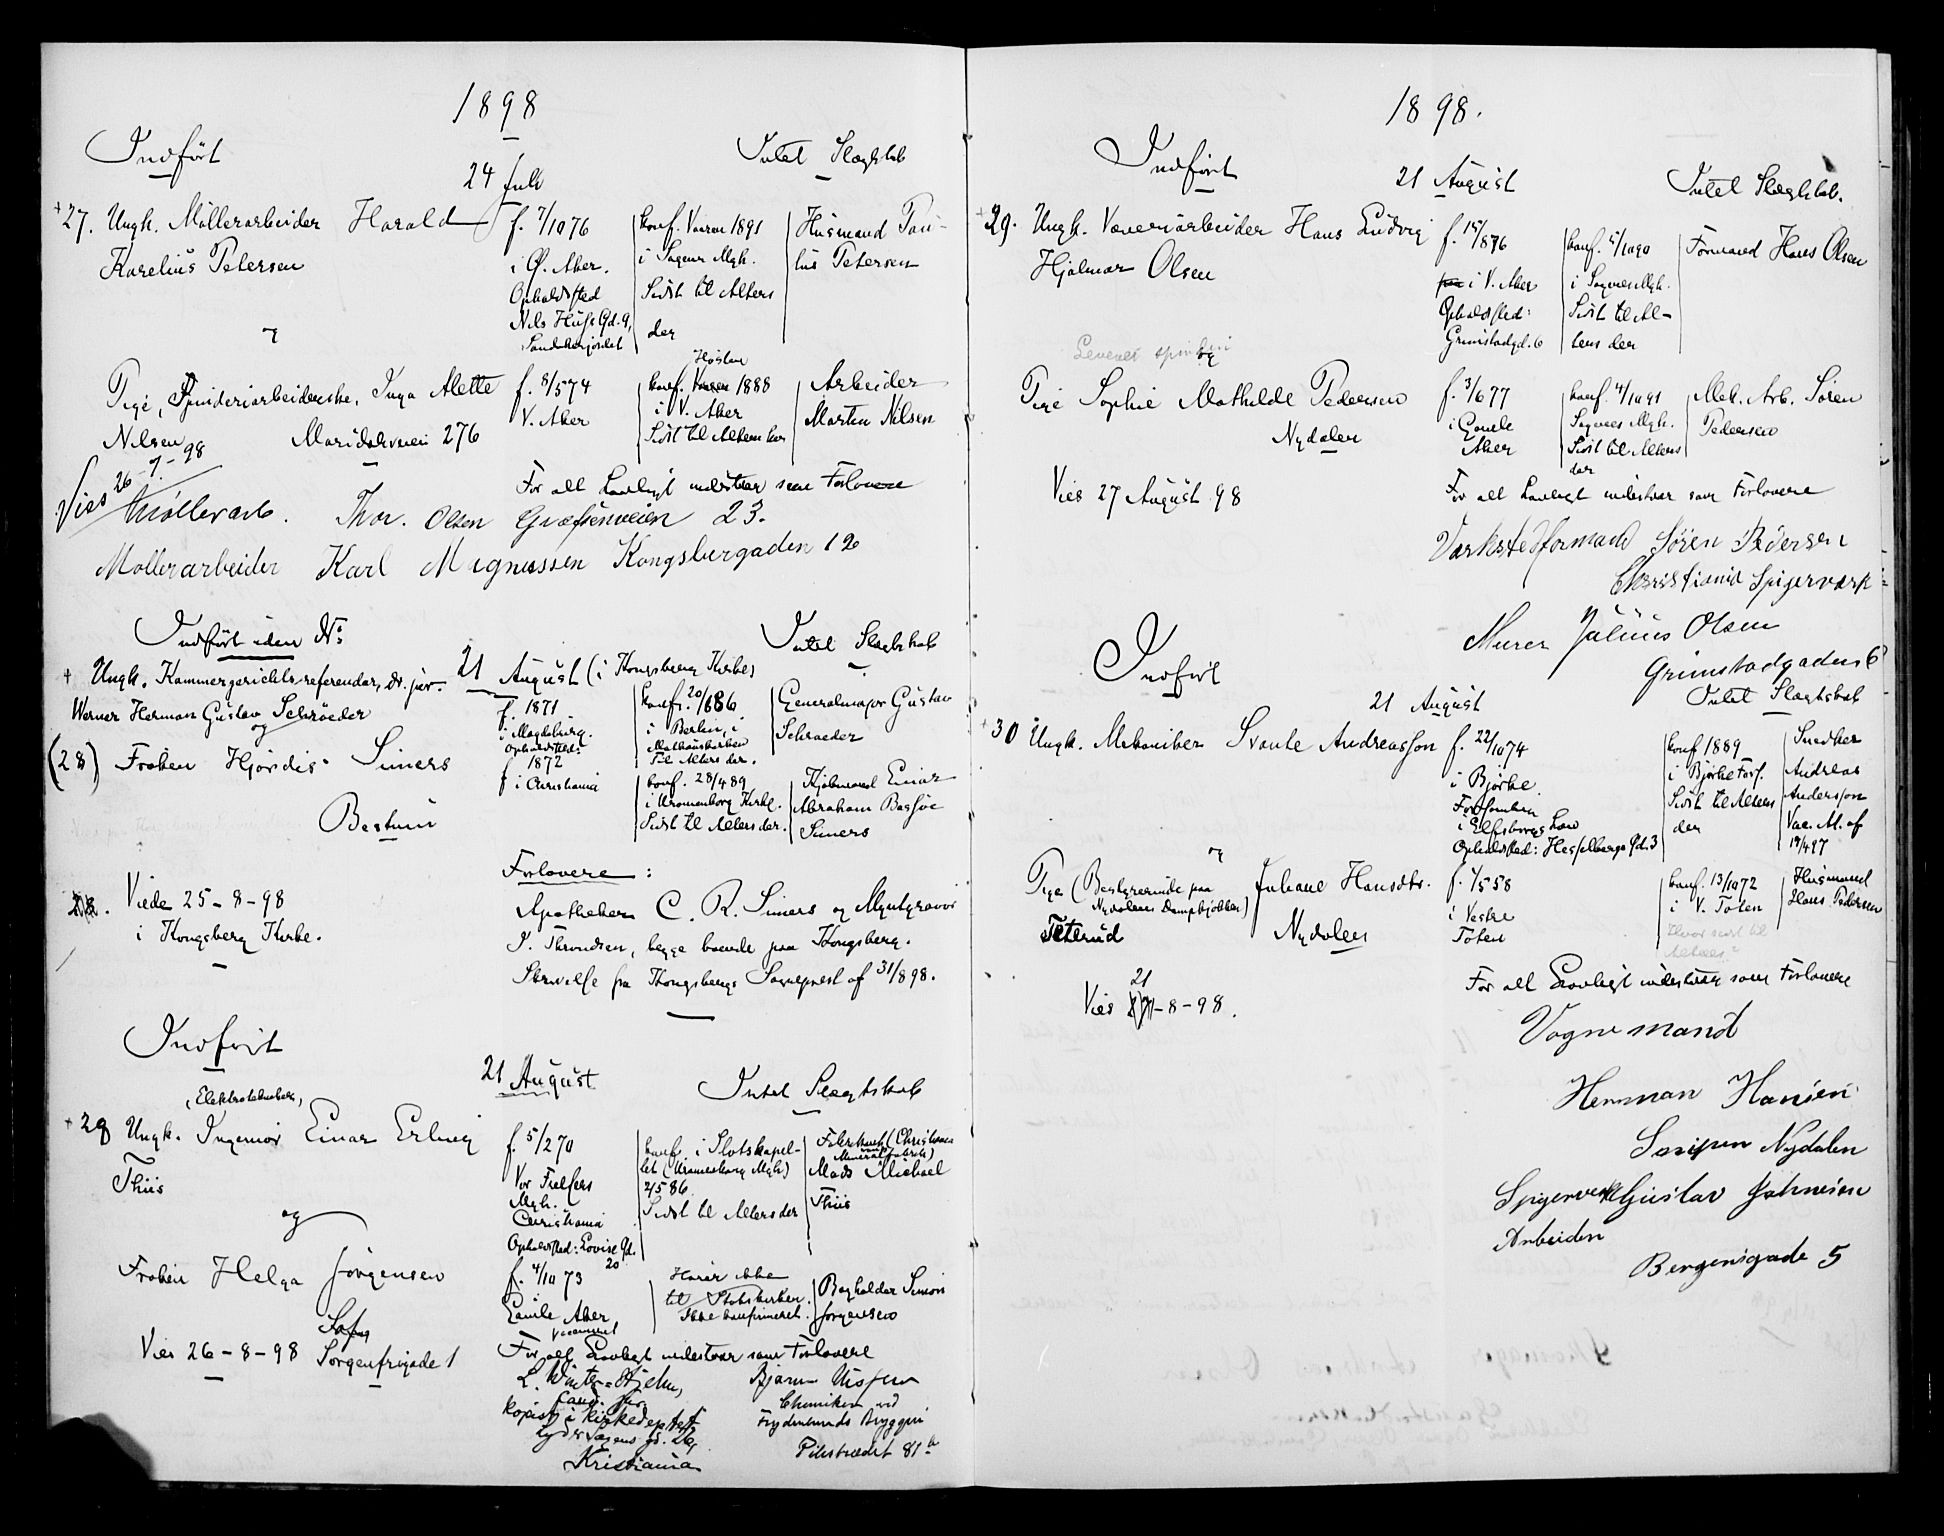 1898
Indført
24 Juli
Intet Slægtskab
+27. Ungk. Møllerarbeider Harald
Karelius Petersen
f. 7/10 76
i Ø. Aker.
Opholdssted
Nils Huus Gd. 9,
Sandakerjordet
konf. Vaaren 1891
i Sagene Mgh.
Sidst til Alters
der
Husmand Pau-
lus Petersen
og
Pige, Spinderiarbeiderske, Inga Alette
Nilsen Maridalsveien 276
f. 8/5 74
V. Aker
Høsten
konf. Vaaren 1888
i V. Aker
Sidst til Alters her
Arbeider
Martin Nilsen
Vies 26-7-98
For alt Lovligt indestaar som Forlovere
Møllerarb. Thor. Olsen Græfsenveien 23.
Møllerarbeider Karl Magnussen Kongsbergaden 12
Indført uden No
21 August (i Kongsberg Kirke)
Intet Slægtskab
+ Ungk. Kammergerichts-referendar, Dr. jur.
Werner Herman Gustav Schroeder
og
f. 1871
i Magdeburg.
Opholdssted:
konf. 20/1 86
i Berlin, i
Mathäuskirken
Til Alters der.
Generalmajor Gustav
Schroeder
(28) Frøken Hjørdis Simers
Bestum
1872
f. i Christiania
konf. 28/4 89
i Uranienborg Kirke.
Sidst til Alters der.
Kjøbmand Einar
Abraham Bassøe
Simers
28. Viede 25-8-98
i Kongsberg Kirke.
Forlovere:
Apotheker C. R. Simers og Myntgravør
I. Throndsen, begge boende paa Kongsberg.
Skrivelse fra Kongsbergs Sognepræst af 31/8 98.
Indført
21 August
Intet Slægtskab
(Elektrotekniker,)
+28 Ungk. Ingeniør Einar Erling
Thiis
f. 5/2 70
Vor Frelsers
Mgh.
Christiania
Opholdssted: Lovise Gd.
20
konf. i Slotskapel-
let (Uranienborg Mgh)
2/5 86
Sidst til Alters der
Fabrikant (Christiania
Mineralvandfabrik)
Mads Michael
Thiis
og
Frøken Helga Jørgensen
Sorgenfrigade 1
f. 4/10 73
Gamle Aker
Hører ikke
til Statskirken.
Ikke konfirmeret.
Bogholder Simon
Jørgensen
Vies 26-8-98
For alt Lovligt indestaar som Forlovere
L. Winter-Hjelm,
Cand. jur.
kopist i kirkedeptet
Lyder Sagens gd. 26,
Kristiania
Bjarne
Chemiker ved
Frydenlunds Bryggeri
Pilestrædet 81 b
1898.
Indført
21 August
Intet Slægtskab.
+29. Ungk. Væveriarbeider Hans Ludvig
Hjalmar Olsen
f. 15/8 76
i V. Aker
Opholdssted:
Grimstadgd. 6
konf. 5/10 90
i Sagenes Mgh.
Sidst til Al-
ters der
Formand Hans Olsen
og
Pige Sophie Mathilde Pedersen
Nydalen
f. 3/6 77
i Gamle
Aker
konf. 4/10 91
Sagenes Mgh.
Sidst til Alters
der
Mek. Arb. Søren
Pedersen
Vies 27 August 98
For alt Lovligt indestaar som Forlovere
Værkstedformand Søren Pedersen
Christiania Spigerværk
Murer Julius Olsen
Grimstadgaden 6
Indført
21 August
Intet Slægtskab
+30 Ungk. Mekaniker Svante Andreasson
f. 22/10 74
i Bjørke
Forsamling
i Elfsborgs Län
Opholdssted: Hesselbergs Gd. 3
konf 1889
i Bjørke Fors.
Sidst til Alters
der
Snedker
Andreas
Andersson
Vac. At. af
19/4 97
og
Pige (Bestyrerinde paa
Nydalens Dampkjøkken) Juliane Hansdtr.
Teterud Nydalen
f. 1/5 58
i Vestre
Toten
konf. 13/10 72
i V. Toten
Hvor sidst til
Alters?
Husmand
Hans Pedersen
21
Vies 27-8-98.
For alt Lovligt indestaar som Forlovere
Vognmand
Herman Hansen
Nydalen
Spigerverk Gustav Johnsen
Arbeider
Bergensgade 5